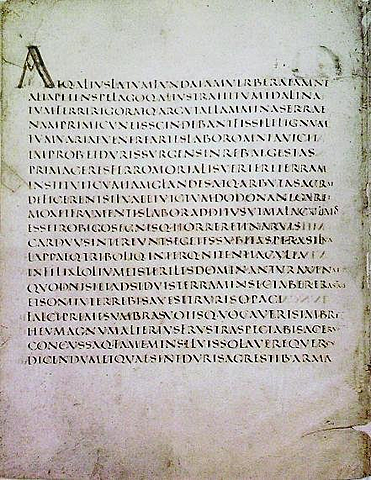 ATQALIUSLATUMFUNDAIAMVERBERATAMNE
ALTAPETENSPELAGOQALIUSTRAHITUMIDALINA
TUMFERRIRIGORATQARGUTAELAMINASERRAE
NAMPRIMICUNEISSCINDEBANTFISSILELIGNUM
TUMVARIAEVENEREARTESLABOROMNIAVICIT
IMPROBETDURISURGENSINREBEGESTAS
PRIMACERESFERROMORTALISVERTERETERRAM
INSTITUITCUMIAMGLANDESATQARBUTASACRAE
DEFICERENTSILVAEETVICTUMDODONANEGARET
MOXETFRUMENTISLABORADDITUSUTMALACULMOS
ESSETROBIGOSEGNISQHORRERETINARVIS
CARDUUSINTEREUNTSEGETESSUBITASPERASILVA
LAPPAEQTRIBOLIQINTERQNITENTIACULTA
INFELIXLOLIUMETSTERILESDOMINANTURAVENAE
QUODNISIETADSIDUISTERRAMINSECTABERERASTRIS
ETSONITUTERREBISAVESETRURISOPACI
FALCEPREMESUMBRASVOTISQVOCAVERISIMBRE
HEUMAGNUMALTERIUSFRUSTRASPECTABISACERV
CONCUSSAQFAMEMINSILVISSOLAVEREQUERCU
DICENDUMETQUAESINTDURISAGRESTIBARMA